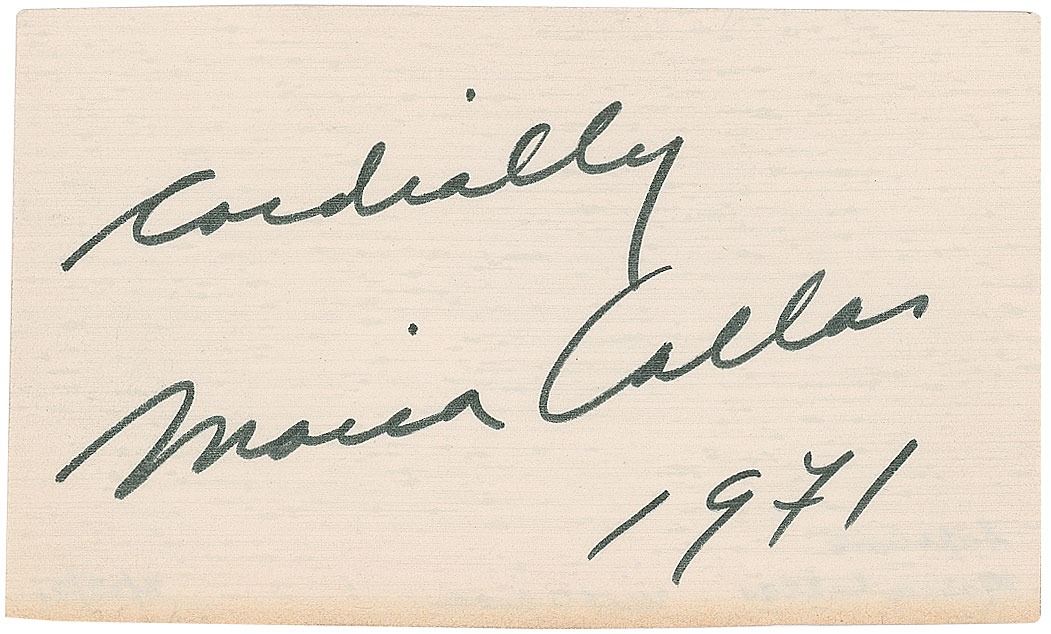 Cordially
Maria Callas
1971